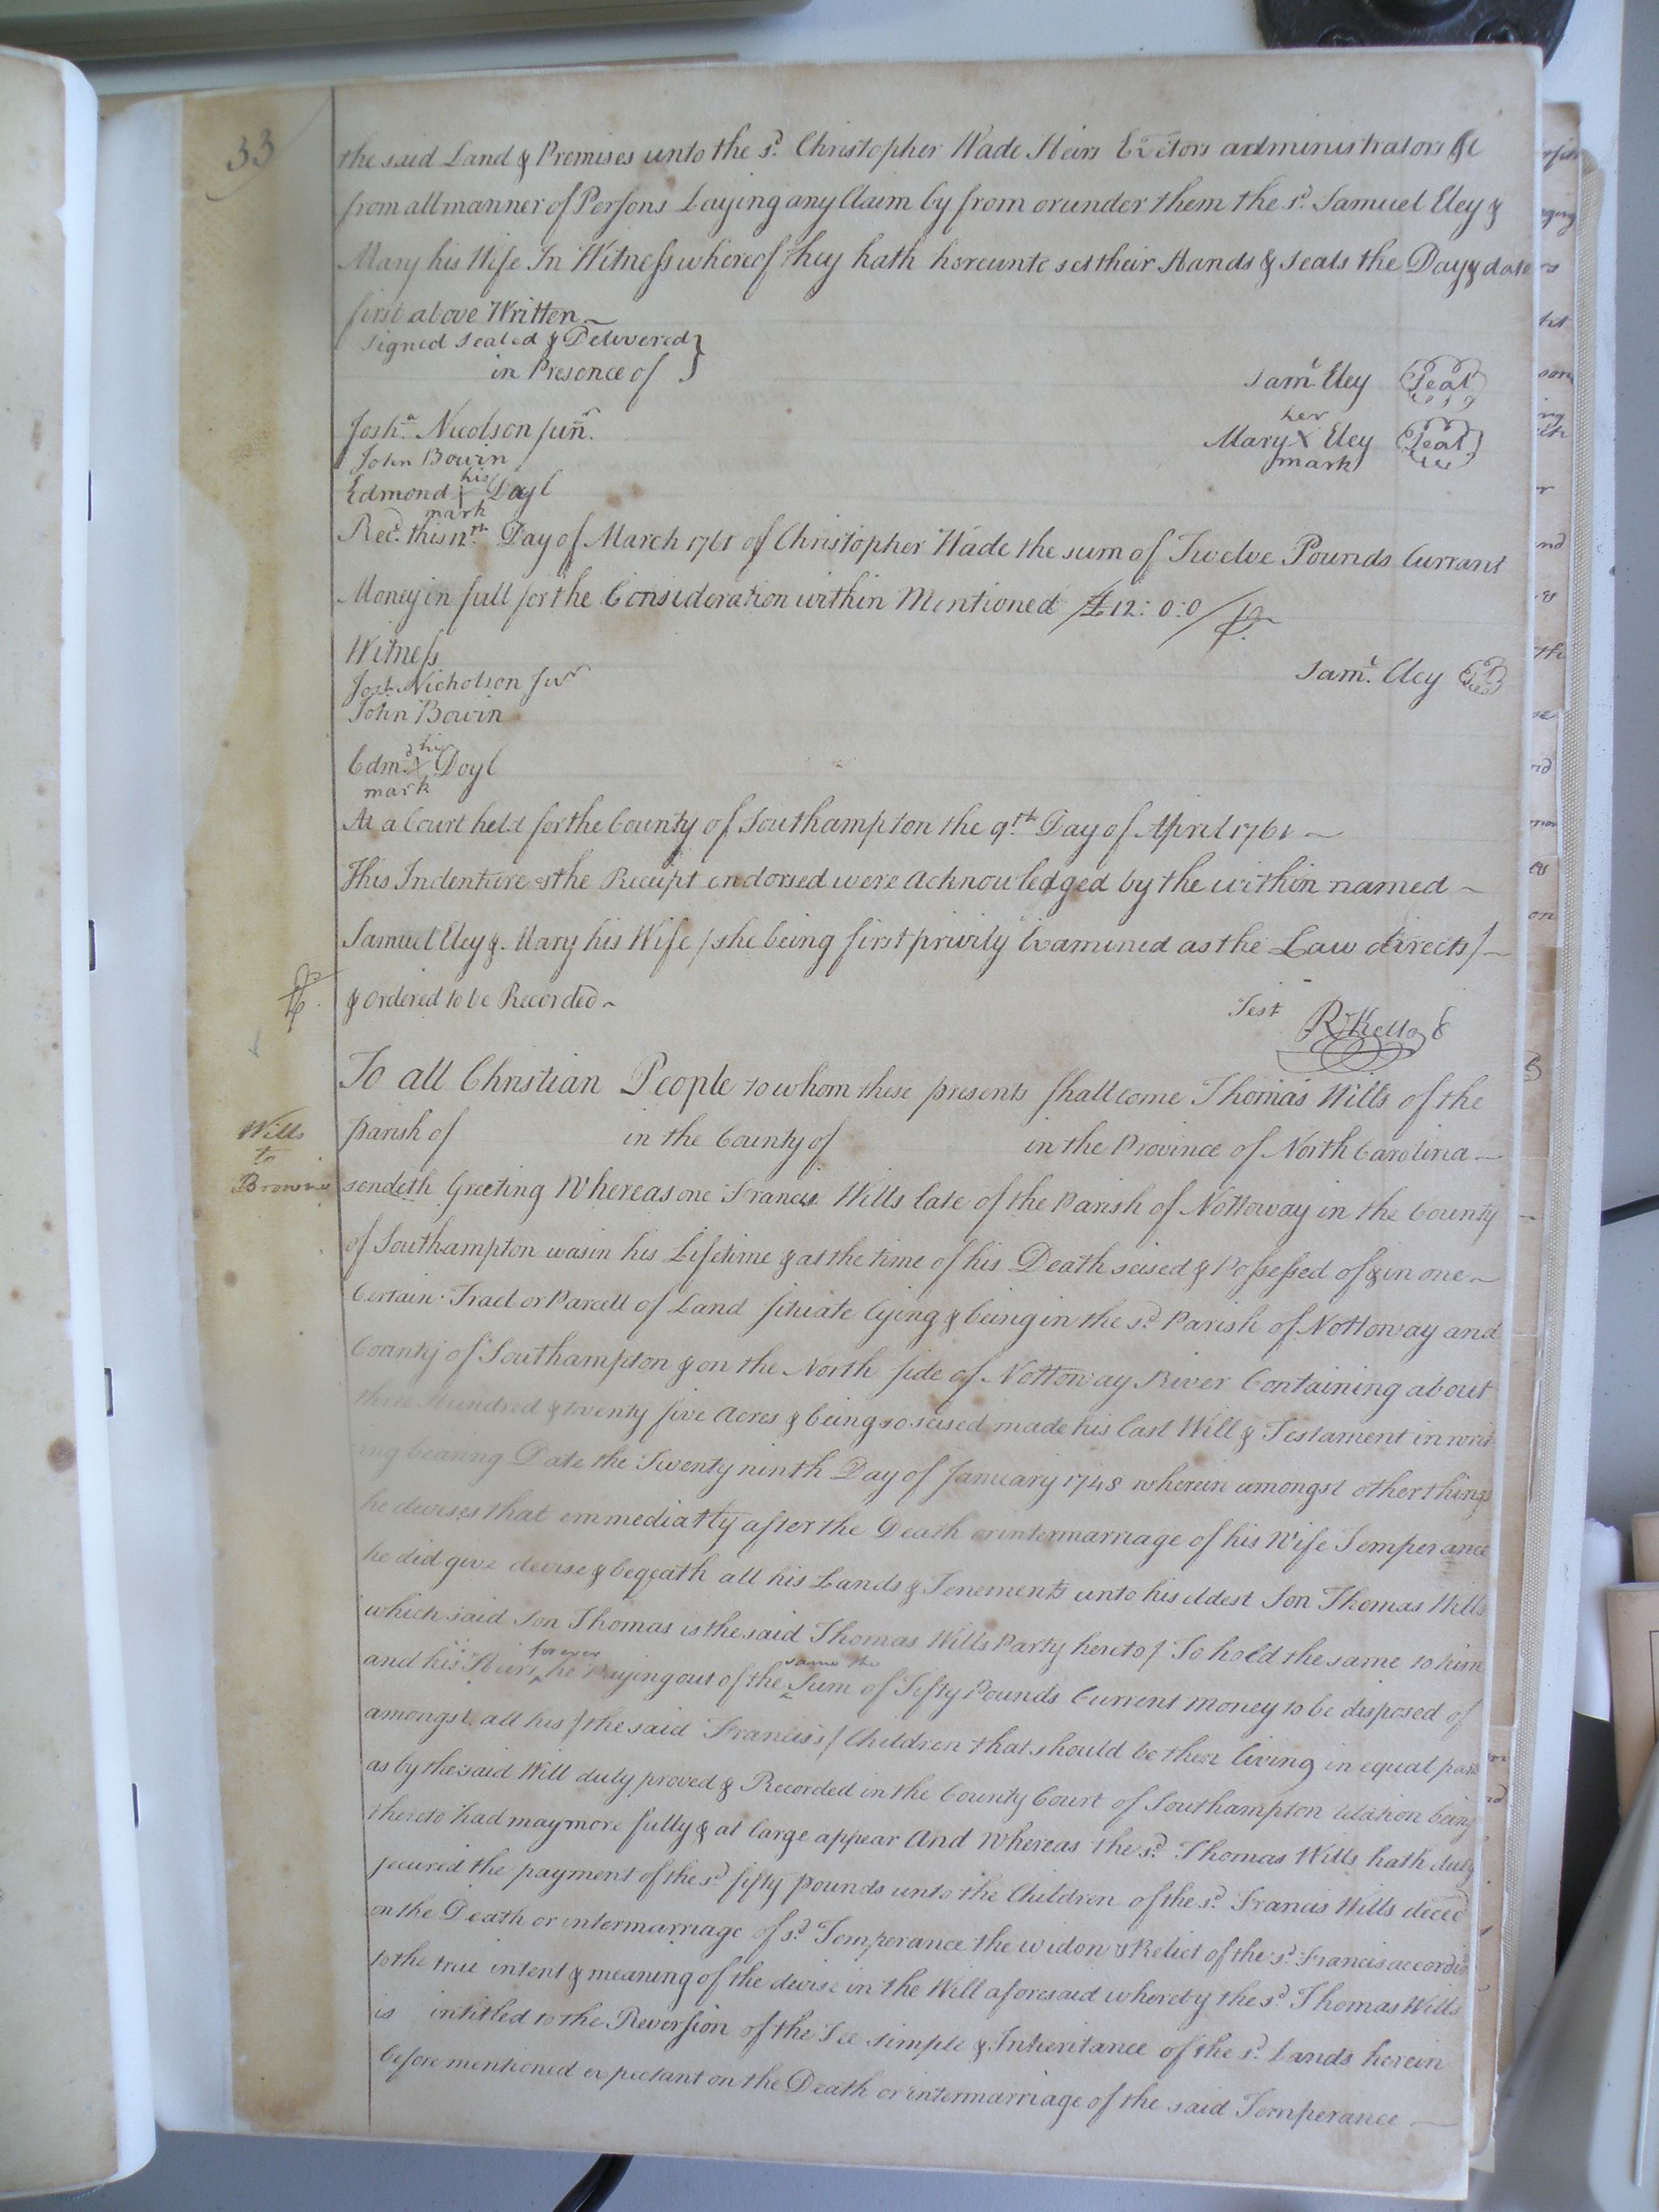 33
the said Land & Premises unto the sd. Christopher Wade Heirs Exetors administrators &c
from all manner of Persons Laying any Claim by from or under them the sd. Samuel Eley &
Mary his Wife In Witness whereof they hath hereunto set their Hands & seals the Day & date
first above Written
Signed Sealed & Delivered }
in Presence of }
Saml. Eley Seal
Josha. Nicolson junr.
her
Mary X Eley Seal
mark
John Bowin
his
Edmond Doyl
mark
Recd. this 12th. Day of March 1761 of Christopher Wade the sum of Twelve Pounds Currant
Money in full for the Consideration within Mentioned / £12:0:0 /
Witness
Saml. Eley Seal
Josh. Nicholson Junr
John Bowin
his
Edmd. X Doyl
mark
At a Court held for the County of Southampton the 9th. Day of April 1761
This Indenture & the Receipt endorsed were Acknowledged by the within named
Samuel Eley & Mary his Wife / she being first privily Examined as the Law directs /
& ordered to be Recorded
Test R Kello
To all Christian People to whom these presents shall come Thomas Wills of the
Wills
to
Browne
parish of in the County of in the Province of North Carolina
sendeth Greeting Whereas one Francis Wills late of the Parish of Nottoway in the County
of Southampton was in his Lifetime & at the time of his Death seised & Possessed of & in one
Certain Tract or Parcell of Land situate lying & being in the sd. Parish of Nottoway and
County of Southampton & on the North side of Nottoway River Containing about
three Hundred & twenty five Acres & being so seised made his last Will & Testament in writ
ing bearing Date the Twenty ninth Day of January 1748 wherein amongst other things
he devises that emmediatly after the Death or intermarriage of his Wife Temperance
he did give devise & beqeath all his Lands & Tenements unto his eldest Son Thomas Wills
which said Son Thomas is the said Thomas Wills Party hereto / To hold the same to him
and his Heirs forever he Paying out of the same the Sum of Fifty Pounds Current money to be disposed of
amongst all his / the said Francis's / Children that should be then living in equal parts
as by the said Will duly proved & Recorded in the County Court of Southampton relation being
thereto had may more fully & at large appear And Whereas the sd. Thomas Wills hath duly
secured the payment of the sd. fifty pounds unto the Children of the sd. Francis Wills deced
on the Death or intermarriage of sd. Temperance the widow & Relict of the sd. Francis accordin
to the true intent & meaning of the devise in the Will aforesaid whereby the sd. Thomas Wills
is intitled to the Reversion of the Fee simple & Inheritance of the sd. Lands herein
before mentioned expectant on the Death or intermarriage of the said Temperance